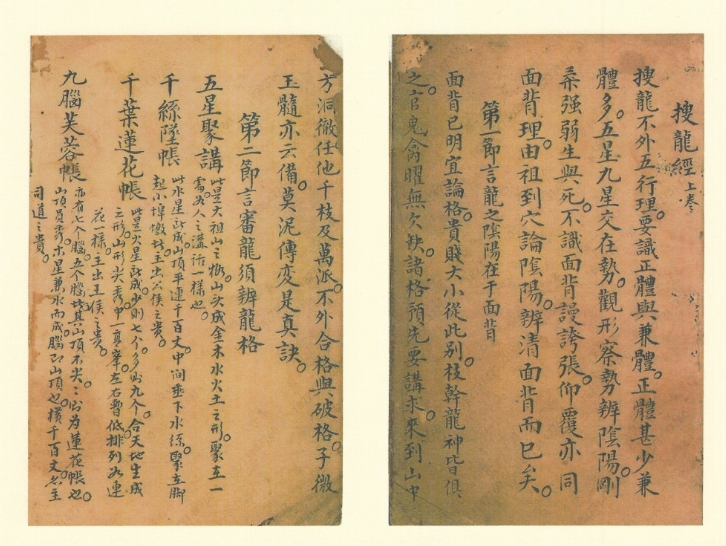 搜龍經上卷
搜龍不外五行理。要識正體與兼體。正體甚少兼
體多。五星九星交在勢。觀形察勢辨陰陽。剛
柔强弱生與死。不識面背謾誇張。仰覆亦同
面背理。由祖到穴論陰陽。辨清面背而已矣。
第一節言龍之陰陽在于面背
面背已明宜論格。貴賤大小從此別。枝幹龍神皆俱
之。官鬼禽曜無欠缺。諸格預先要講求。來到山中
方洞徹。任他千枝及萬派。不外合格與破格。子微
玉髓亦云備。莫泥傳变是真訣。
第二節言審龍須辨龍格
五星聚講 此是大祖山之極山頂成金木水火土之形聚在一
處如人之講術一樣也。
千絲墜帳 此水星所成山頂平連千百丈中间垂下水絲。聚在脚
起小埠墩此主出公侯之貴。
千葉蓮花帳 此是火星所成少則七个。多則九个。合天地生成
之形。山形尖秀中一真峯。左右暫低排列如蓮
花一樣。主出王侯之貴。
九腦芙蓉帳 亦有七个腦五个腦此其山頂不尖。尖則为蓮花帳也。
山頂員秀。木星兼水而成腦即山頂也。橫千百丈者主
同道之貴。